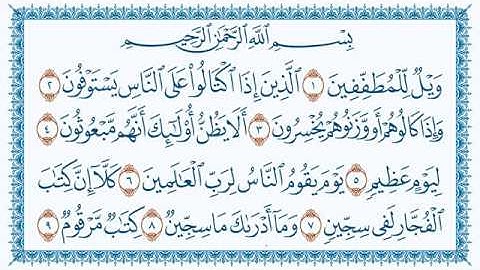 بِسْمِ اللَّهِ الرَّحْمَٰنِ الرَّحِيمِ
وَيْلٌ لِّلْمُطَفِّفِينَ ١ الَّذِينَ إِذَا اكْتَالُوا عَلَى النَّاسِ يَسْتَوْفُونَ ٢
وَإِذَا كَالُوهُمْ أَو وَّزَنُوهُمْ يُخْسِرُونَ ٣ أَلَا يَظُنُّ أُولَٰئِكَ أَنَّهُم مَّبْعُوثُونَ ٤
لِيَوْمٍ عَظِيمٍ ٥ يَوْمَ يَقُومُ النَّاسُ لِرَبِّ الْعَالَمِينَ ٦ كَلَّا إِنَّ كِتَابَ
الْفُجَّارِ لَفِي سِجِّينٍ ٧ وَمَا أَدْرَاكَ مَا سِجِّينٌ ٨ كِتَابٌ مَّرْقُومٌ ٩